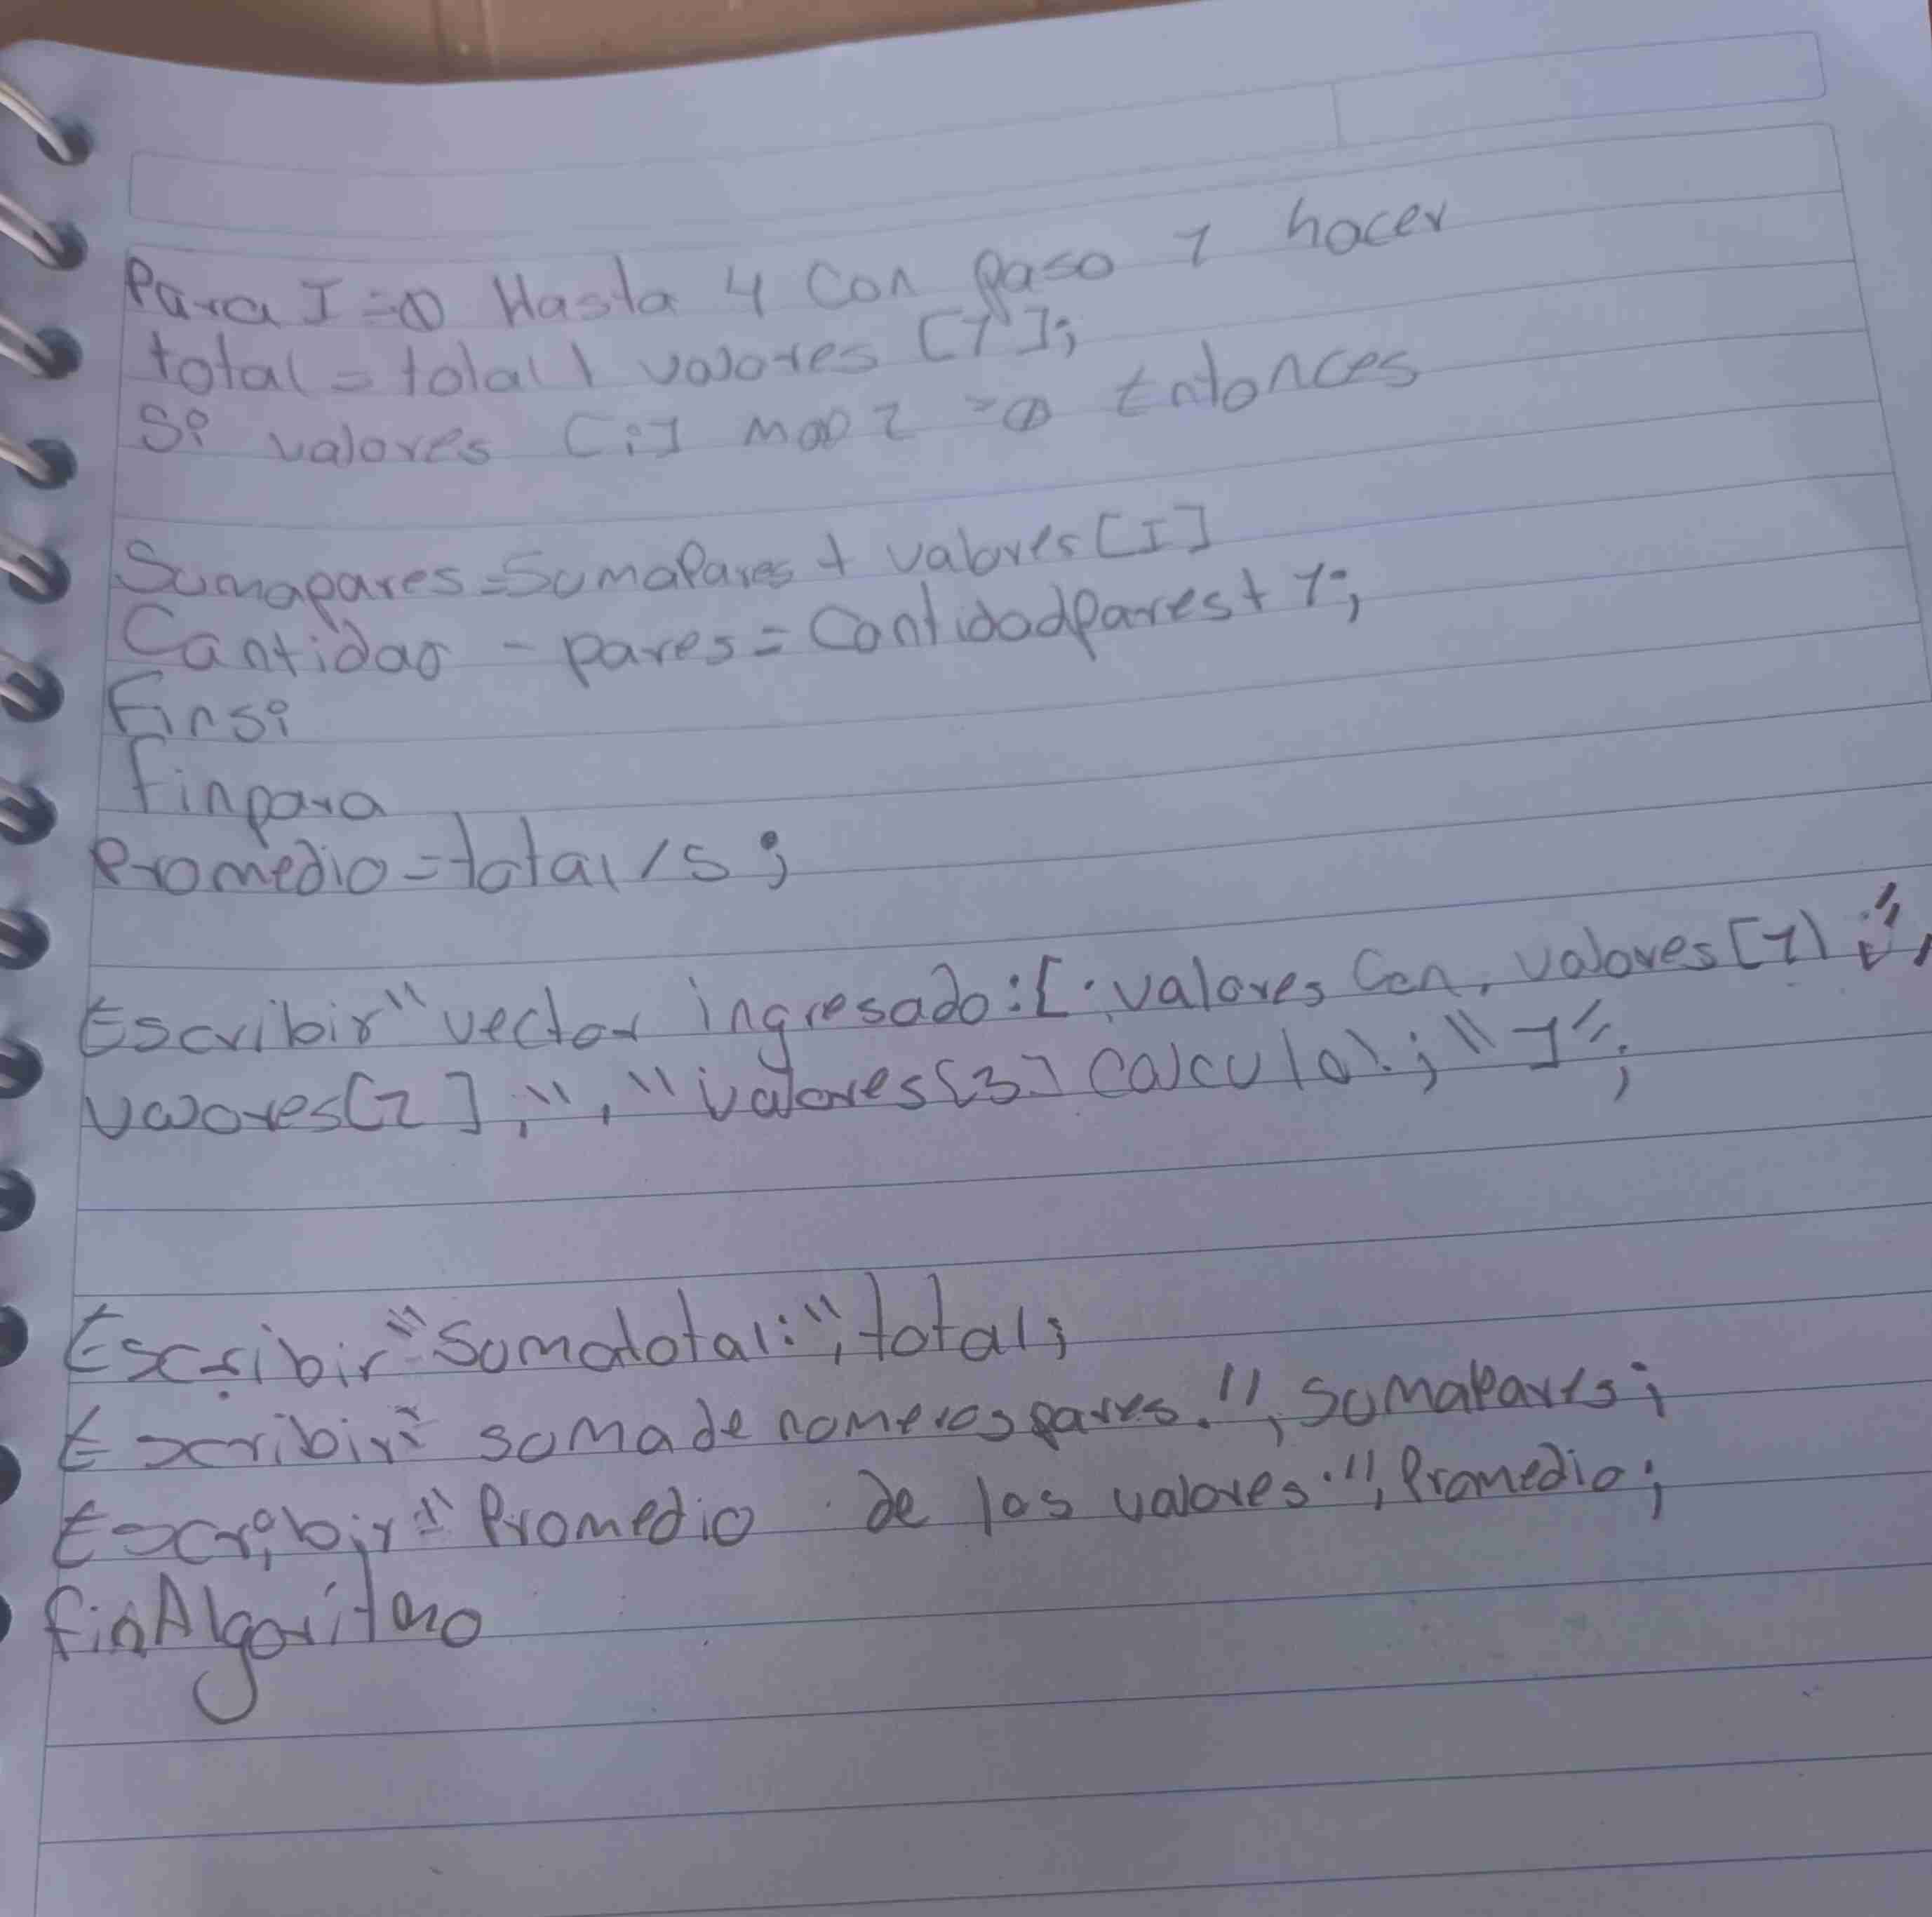 Para I=0 Hasta 4 Con paso 1 hacer
total = total + valores [1];
Si valores [i] MOD 2 =0 Entonces
Sumapares=SumaPares + valores[I]
Cantidad - pares = CantidadPares + 1;
Finsi
finpara
Promedio = total / 5 ;
Escribir "vector ingresado:[ valores valores[1]
valores[2] ; " , " valores[3] "]" ;
Escribir "Sumatotal:", total;
Escribir " suma de numeros pares.", sumaPares;
Escribir " Promedio de los valores.", Promedio;
finAlgoritmo